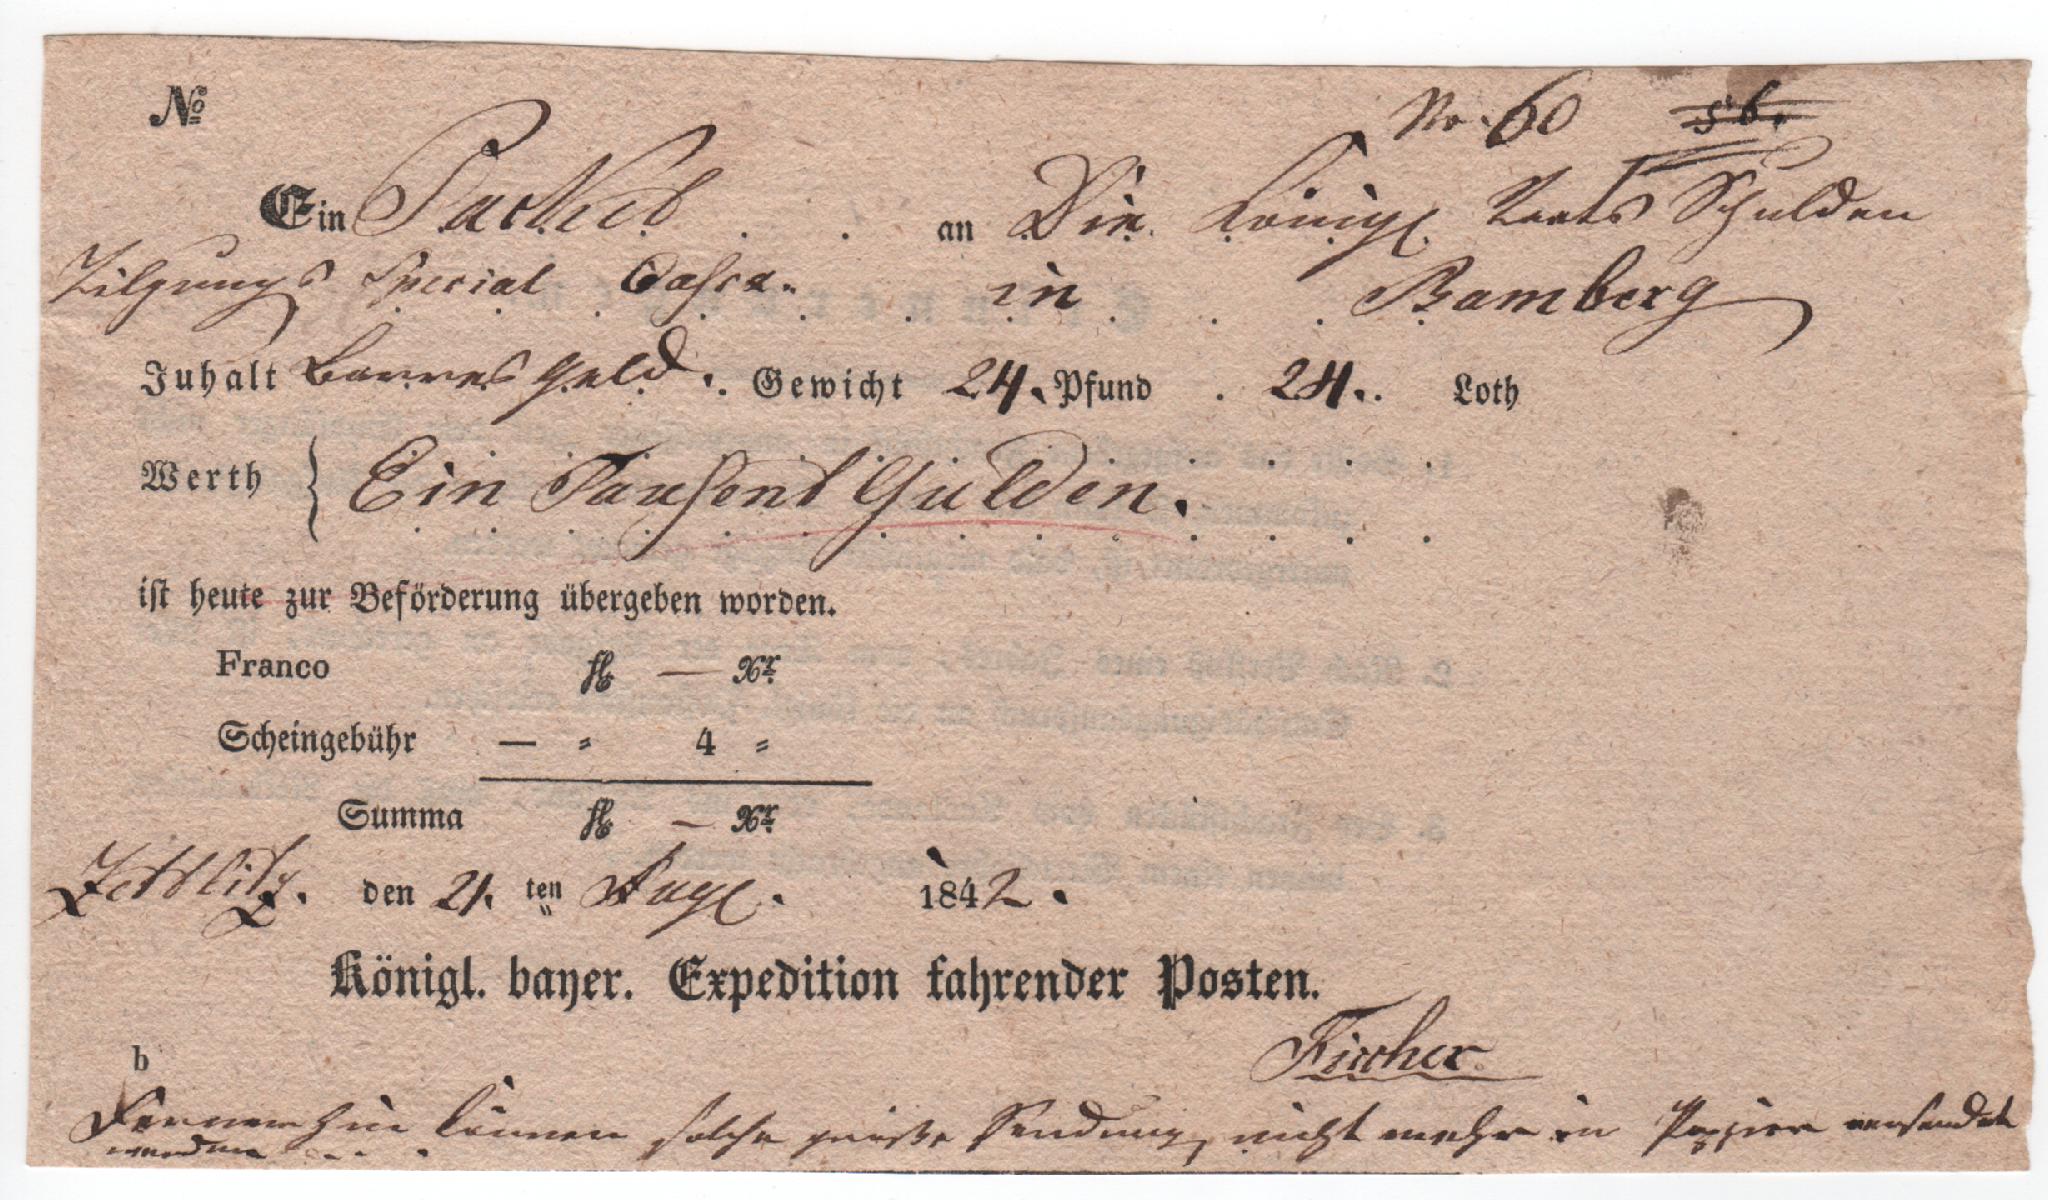 No
No. 60 56.
Ein Packet an Die Königl. Staats Schulden
Tilgungs Special Cassa. in Bamberg
Inhalt Baares Geld. Gewicht 24. Pfund 24. Loth
Werth { Ein Tausent Gulden.
ist heute zur Beförderung übergeben worden.
Franco fl — Xr.
Scheingebühr — " 4 "
Summa fl — Xr.
Zettlitz. den 21. ten Aug. 1842.
Königl. bayer. Expedition fahrender Posten.
Fischer.
b
Fernerhin können solche große Sendung nicht mehr in Papier versendet
werden